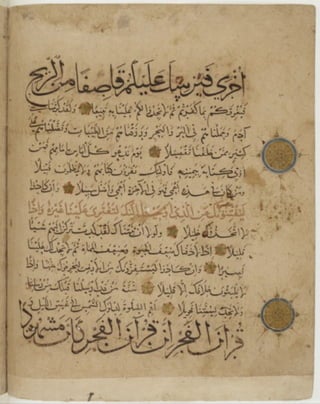 أخرى فيرسل عليكم قاصفا من الريح
فيغرقكم بما كفرتم ثم لا تجدوا لكم علينا به تبيعا ولقد كرمنا بني
آدم وحملناهم في البر والبحر ورزقناهم من الطيبات وفضلناهم على
كثير ممن خلقنا تفضيلا يوم ندعو كل أناس بإمامهم فمن
أوتي كتابه بيمينه فأولئك يقرءون كتابهم ولا يظلمون فتيلا
ومن كان في هذه أعمى فهو في الآخرة أعمى وأضل سبيلا وإن كادوا
ليفتنونك عن الذي أوحينا إليك لتفتري علينا غيره وإذا
لاتخذوك خليلا ولولا أن ثبتناك لقد كدت تركن إليهم شيئا
قليلا إذا لأذقناك ضعف الحيوة وضعف الممات ثم لا تجد لك علينا
نصيرا وإن كادوا ليستفزونك من الأرض ليخرجوك منها وإذا
لا يلبثون خلافك إلا قليلا سنة من قد أرسلنا قبلك من رسلنا
ولا تجد لسنتنا تحويلا أقم الصلوة لدلوك الشمس إلى غسق الليل و
قرآن الفجر إن قرآن الفجر كان مشهودا